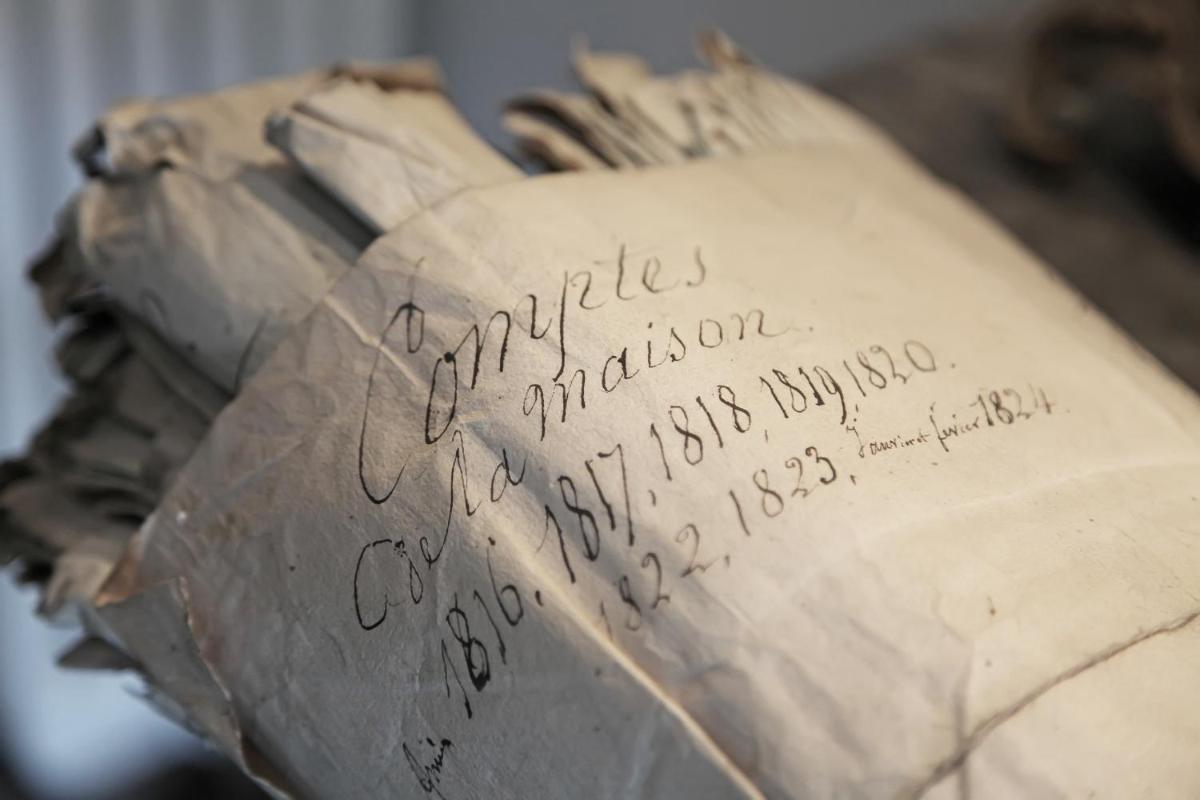 Comptes
de la maison.
1816. 1817, 1818, 1819, 1820.
1822, 1823, Janvier et fevrier 1824.